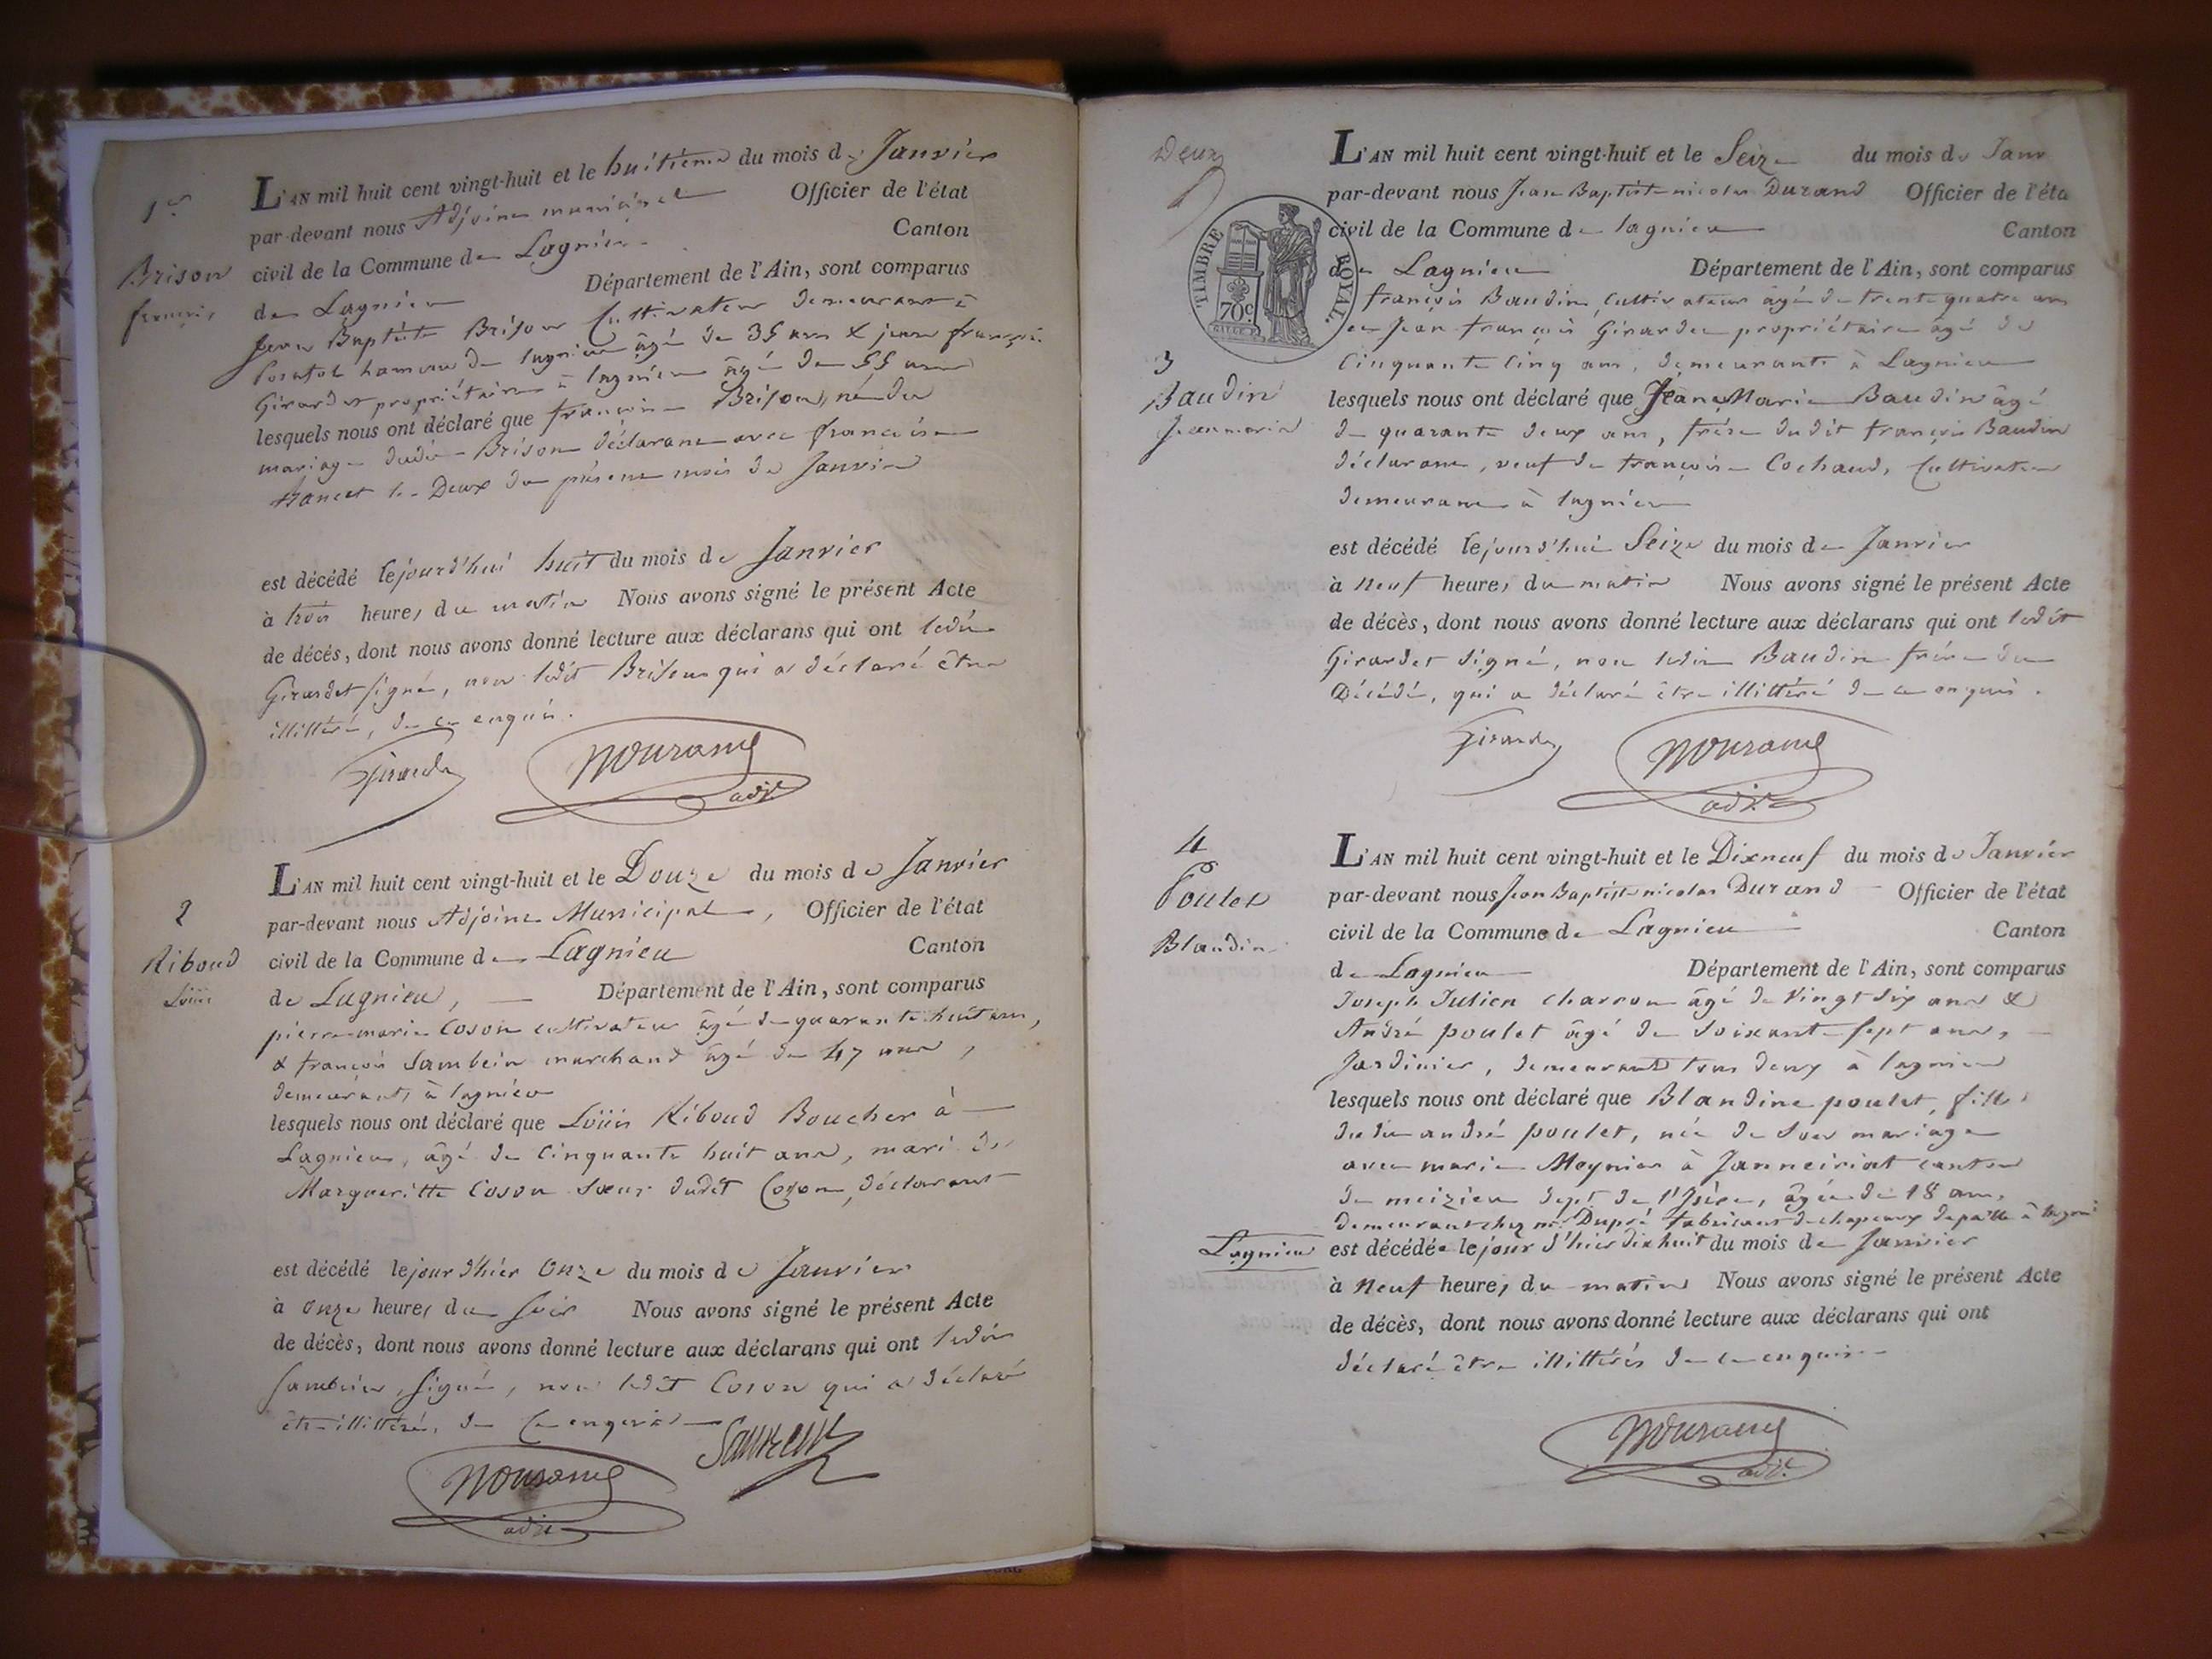 1er
Brison
françois
L'AN mil huit cent vingt-huit et le huitième du mois de Janvier
par-devant nous Adjoint municipal Officier de l'état
civil de la Commune de Lagnieu Canton
de Lagnieu Département de l'Ain, sont comparus
Jean Baptiste Brison Cultivateur demeurant à
hameau de Lagnieu âgé de 35 ans & jean françois
Girardet propriétaire à Lagnieu âgé de 55 ans
lesquels nous ont déclaré que françois Brison, né du
mariage dudit Brison déclarant avec françoise
le Deux du présent mois de Janvier
est décédé lejourd'hui huit du mois de Janvier
à trois heures du matin Nous avons signé le présent Acte
de décès, dont nous avons donné lecture aux déclarans qui ont ledit
Girardet signé, non ledit Brison qui a déclaré être
illittéré, de ce enquis.
Girardet
NDurand
adjt
2
Riboud
Loüis
L'AN mil huit cent vingt-huit et le Douze du mois de Janvier
par-devant nous Adjoint Municipal, Officier de l'état
civil de la Commune de Lagnieu Canton
de Lagnieu, Département de l'Ain, sont comparus
pierre marie Coson cultivateur âgé de quarante huit ans,
& françois Sambein marchand âgé de 47 ans,
demeurants à lagnieu
lesquels nous ont déclaré que Loüis Riboud Boucher à
Lagnieu, âgé de Cinquante huit ans, mari de
Margueritte Coson soeur dudit Coson, déclarant
est décédé lejour d'hier Onze du mois de Janvier
à onze heures du soir Nous avons signé le présent Acte
de décès, dont nous avons donné lecture aux déclarans qui ont ledit
Sambein, signé, non ledit Coson qui a déclaré
être illittéré, de ce enquis
NDurand
adjt
Deux
TIMBRE ROYAL.
70c.
3
Baudin
Jean marie
L'AN mil huit cent vingt-huit et le Seize du mois de Janv
par-devant nous Jean Baptiste nicolas Durand Officier de l'éta
civil de la Commune de lagnieu Canton
de Lagnieu Département de l'Ain, sont comparus
françois Baudin Cultivateur âgé de trente quatre ans
et Jean françois Girardet propriétaire âgé de
Cinquante Cinq ans, demeurants à Lagnieu
lesquels nous ont déclaré que Jean Marie Baudin âgé
de quarante deux ans, frère dudit françois Baudin
déclarant, veuf de françoise Cochaud, Cultivateur
demeurant à lagnieu
est décédé lejourd'hui Seize du mois de Janvier
à Neuf heures du matin Nous avons signé le présent Acte
de décès, dont nous avons donné lecture aux déclarans qui ont ledit
Girardet signé, non ledit Baudin frère du
Décédé, qui a déclaré être illittéré de ce enquis.
Girardet
NDurand
adjt
4
Poulet
Blandine
L'AN mil huit cent vingt-huit et le Dixneuf du mois de Janvier
par-devant nous Jean Baptiste nicolas Durand Officier de l'état
civil de la Commune de Lagnieu Canton
de Lagnieu Département de l'Ain, sont comparus
Joseph Julien charron âgé de Vingt six ans &
André poulet âgé de Soixante sept ans,
Jardinier, demeurants tous deux à lagnieu
lesquels nous ont déclaré que Blandine poulet, fille
dudit andré poulet, née de Son mariage
avec marie Meynier à Janneiriat canton
de meizieu dept de l'Isère, âgée de 18 ans,
demeurant chez mr Dupré fabricant de chapeaux de paille à lagnieu
Lagnieu
est décédée lejour d'hier dix huit du mois de Janvier
à Neuf heures du matin Nous avons signé le présent Acte
de décès, dont nous avons donné lecture aux déclarans qui ont
déclaré être illittérés de ce enquis
NDurand
adjt